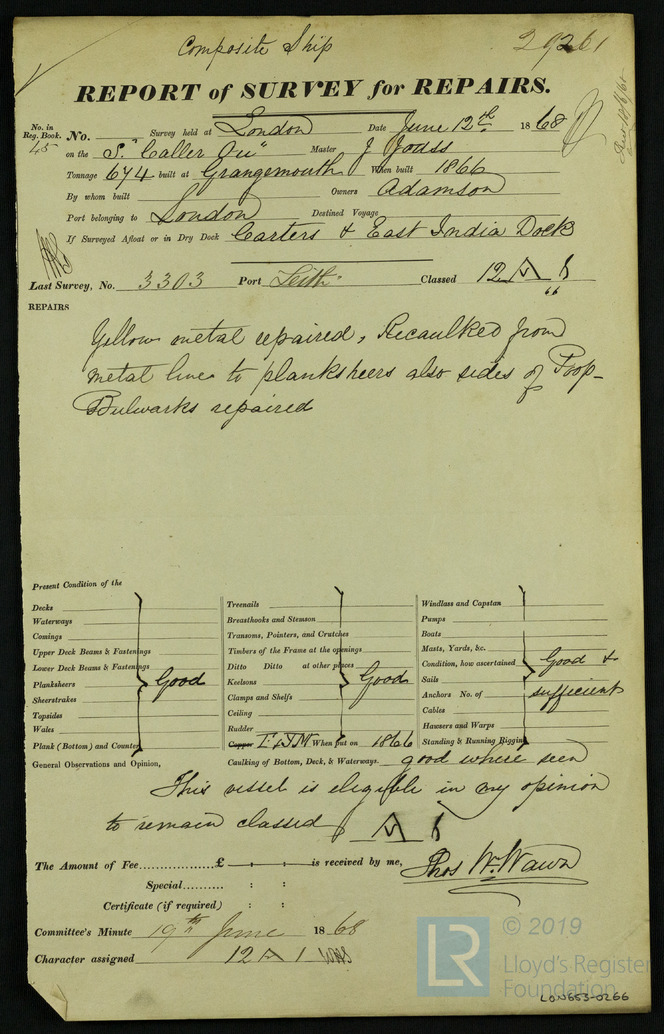 Composite Ship 29261
REPORT of SURVEY for REPAIRS.
No. in
Reg. Book.
45
No. Survey held at London Date June 12th 1868
on the S. "Caller Ou" Master J
Tonnage 674 built at Grangemouth When built 1866
By whom built Owners Adamson
Port belonging to London Destined Voyage
If Surveyed Afloat or in Dry Dock Carters & East India Docks
Last Survey, No. 3303 Port Leith Classed 12 A 1
66
REPAIRS
Yellow metal repaired, Recaulked from
metal line to planksheers also sides of Poop-
Bulwarks repaired
Present Condition of the
Decks
Waterways
Comings
Upper Deck Beams & Fastenings
Lower Deck Beams & Fastenings
Planksheers Good
Sheerstrakes
Topsides
Wales
Plank (Bottom) and Counter
Treenails
Breasthooks and Stemson
Transoms, Pointers, and Crutches
Timbers of the Frame at the openings
Ditto Ditto at other places
Keelsons Good
Clamps and Shelfs
Ceiling
Rudder
Copper When put on 1866
Caulking of Bottom, Deck, & Waterways. good where seen
Windlass and Capstan
Pumps
Boats
Masts, Yards, &c.
Condition, how ascertained Good &
Sails
Anchors No. of sufficient
Cables
Hawsers and Warps
Standing & Running Rigging
General Observations and Opinion,
This vessel is eligible in my opinion
to remain classed A 1
The Amount of Fee................£ : : is received by me, Thos Wm. Wawn
Special.......... : :
Certificate (if required) : :
Committee's Minute 19th June 1868
Character assigned 12 A 1
LR © 2019
Lloyd's Register
Foundation
LON653-0266